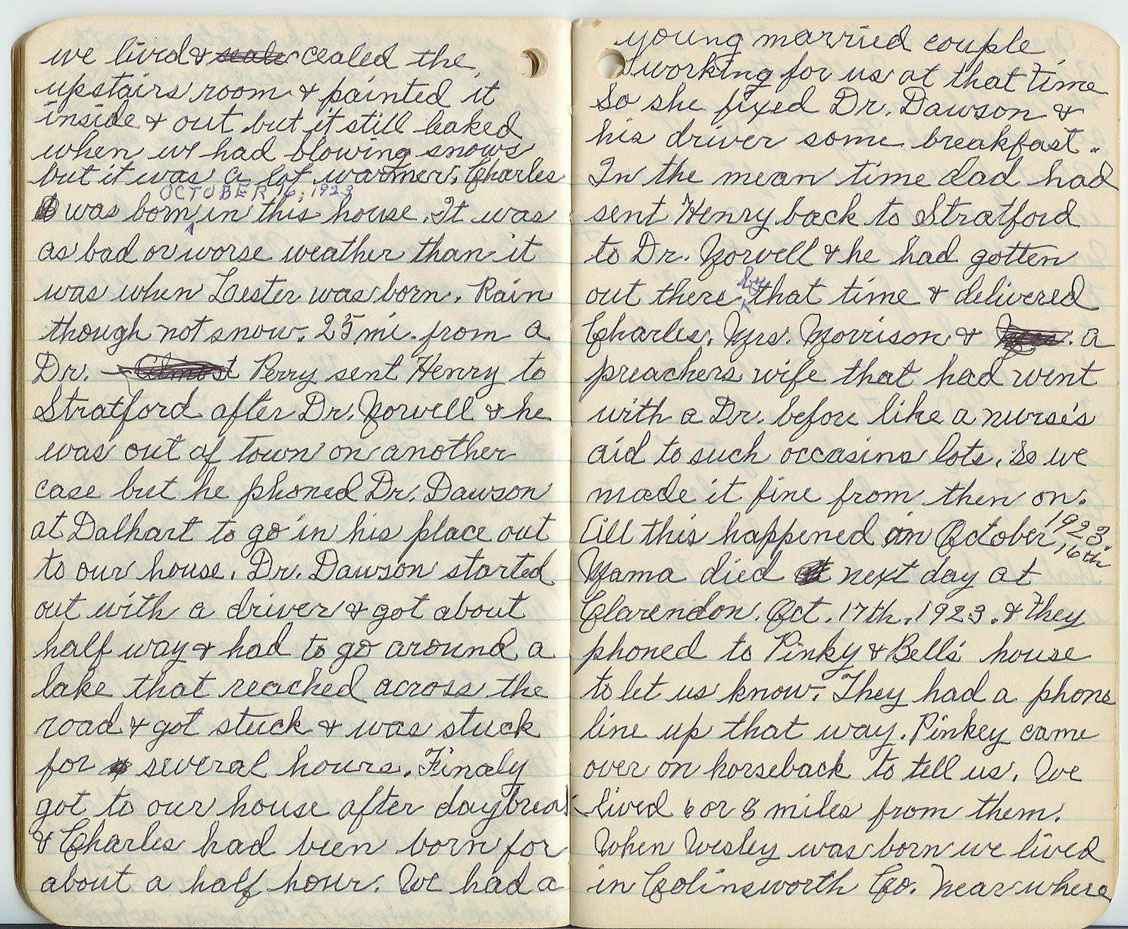 we lived & cealed the
upstairs room & painted it
inside & out but it still leaked
when we had blowing snows
but it was a lot warmer. Charles
OCTOBER 16, 1923
was born in this house. It was
as bad or worse weather than it
was when Lester was born. Rain
though not snow. 25 mi. from a
Dr. Almost Perry sent Henry to
Stratford after Dr. Norvell & he
was out of town on another
case but he phoned Dr. Dawson
at Dalhart to go in his place out
to our house. Dr. Dawson started
out with a driver & got about
half way & had to go around a
lake that reached across the
road & got stuck & was stuck
for several hours. Finaly
got to our house after daybreak
& Charles had been born for
about a half hour. We had a
young married couple
working for us at that time
So she fixed Dr. Dawson &
his driver some breakfast.
In the mean time dad had
sent Henry back to Stratford
to Dr. Norvell & he had gotten
by
out there that time & delivered
Charles. Mrs. Morrison & a
preachers wife that had went
with a Dr. before like a nurse's
aid to such occasins lots. So we
made it fine from then on.
All this happened in October 1923
16th
Mama died next day at
Clarendon. Oct. 17th, 1923. & they
phoned to Pinky & Bell's house
to let us know. They had a phone
line up that way. Pinkey came
over on horseback to tell us. We
lived 6 or 8 miles from them.
When Wesley was born we lived
in Colinsworth Co. near where